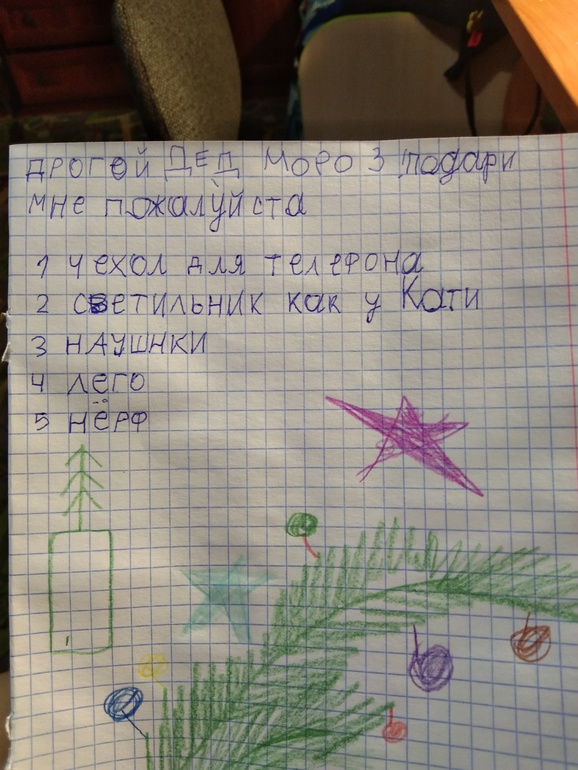 ДРОГОЙ ДЕД МОРОЗ подари
мне пожалуйста
1 чехол для телефона
2 светильник как у Кати
3 наушнки
4 лего
5 нёрф